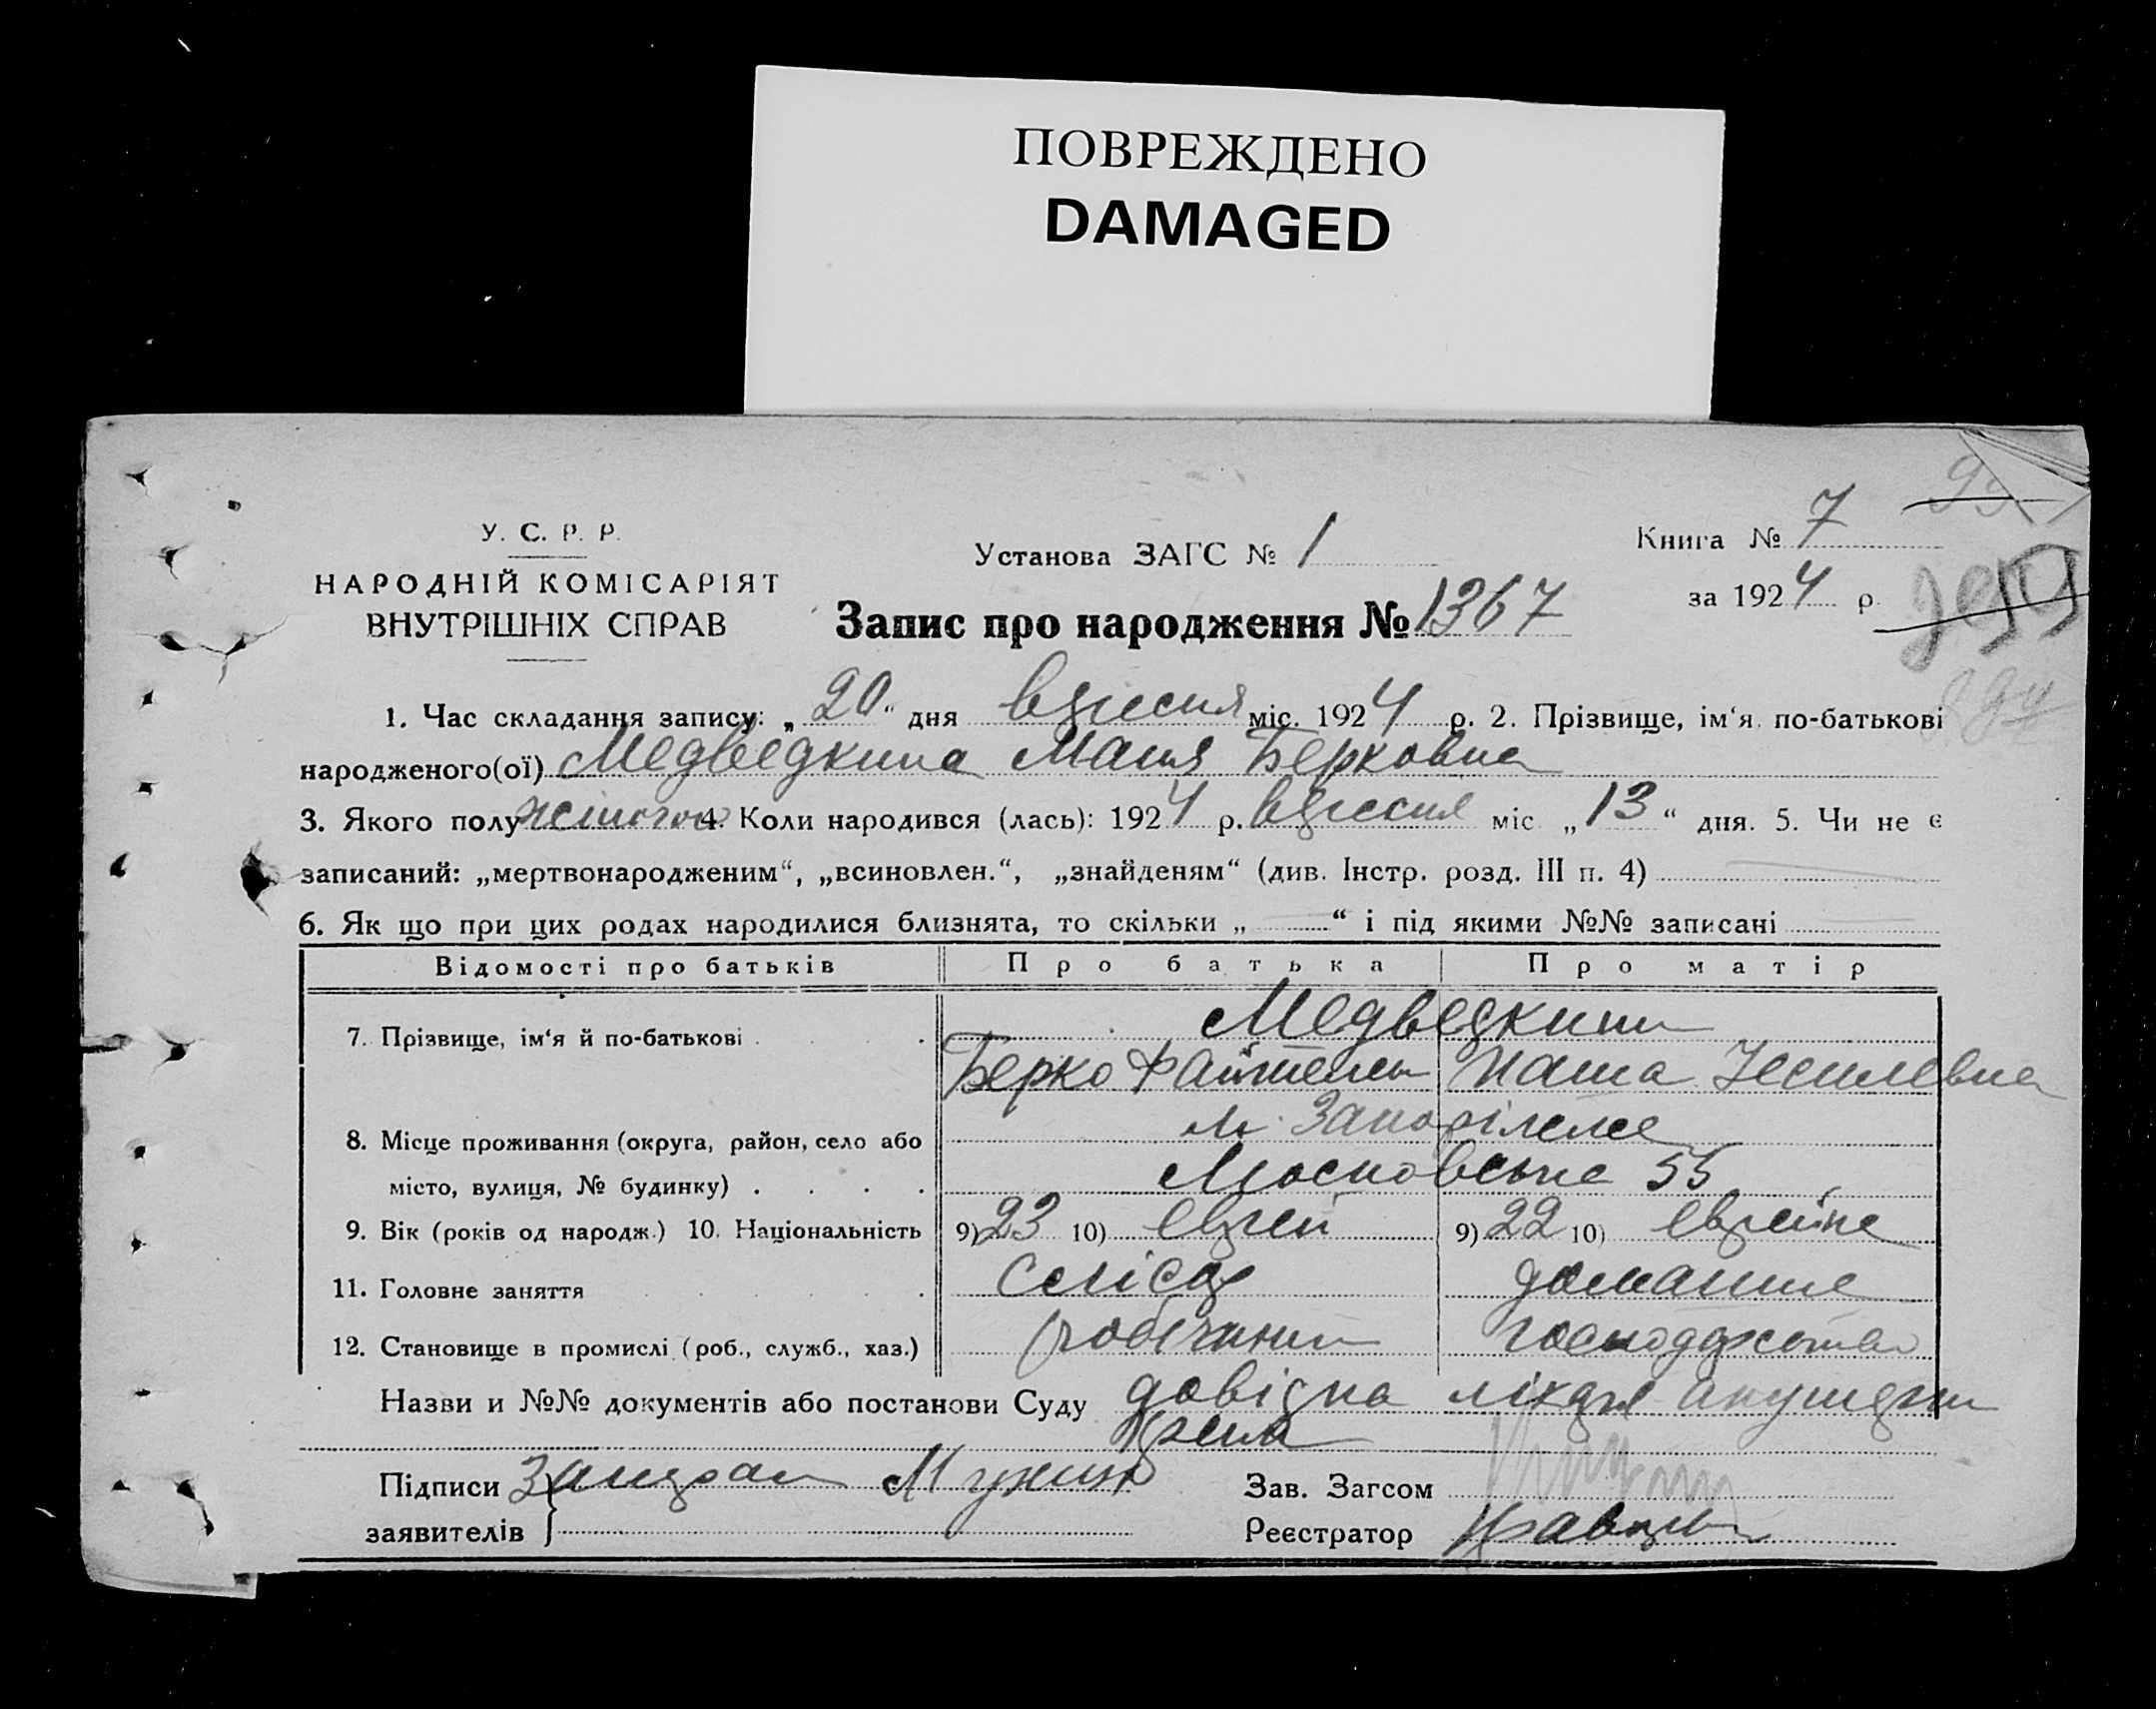 ПОВРЕЖДЕНО
DAMAGED
У. С. Р. Р.
НАРОДНІЙ КОМІСАРІЯТ
ВНУТРІШНІХ СПРАВ
Установа ЗАГС № 1
Книга № 7
за 1924 р.
Запис про народження № 1367
1. Час складання запису: „20“ дня вересня міс. 1924 р. 2. Прізвище, ім‘я по-батькові
народженого(ої) Медведкина Маня Берковна
3. Якого полу жіночого 4. Коли народився (лась): 1924 р. вересня міс. „13“ дня. 5. Чи не є
записаний: „мертвонародженим“, „всиновлен.“, „знайденям“ (див. Інстр. розд. III п. 4)
6. Як що при цих родах народилися близнята, то скільки „ “ і під якими №№ записані
Відомості про батьків Про батька Про матір
7. Прізвище, ім‘я й по-батькові Медведкини
Берко Файтелев
8. Місце проживання (округа, район, село або м. Запоріжже
місто, вулиця, № будинку) Московська 55
9. Вік (років од народж.) 10. Національність 9) 23 10) еврей 9) 22 10) еврейка
11. Головне заняття слісар домашнє
12. Становище в промислі (роб., служб., хаз.) робітник господарство
Назви и №№ документів або постанови Суду довідка лікаря акушерки
Підписи
заявителів
Зав. Загсом
Реєстратор Кравцов